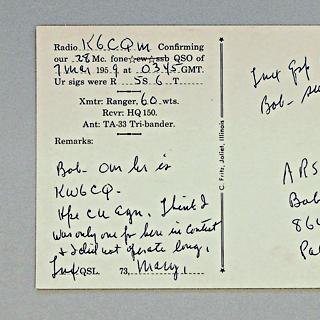 Radio K6CQM Confirming
our 28 Mc. fone☆cw☆ssb QSO of
7 Mar 1959 at 0345 GMT.
Ur sigs were R 5 S 6 T
Xmtr: Ranger, 60 wts.
Rcvr: HQ 150.
Ant: TA-33 Tri-bander.
Remarks:
Bob - Our hr is
KW6CQ -
Hpe cu agn. I think I
was only one for here in contest
& I did not operate long.
Tnx QSL. 73, Mary
C. Fritz, Joliet, Illinois
Tnx
Bob -
ARS
Bob